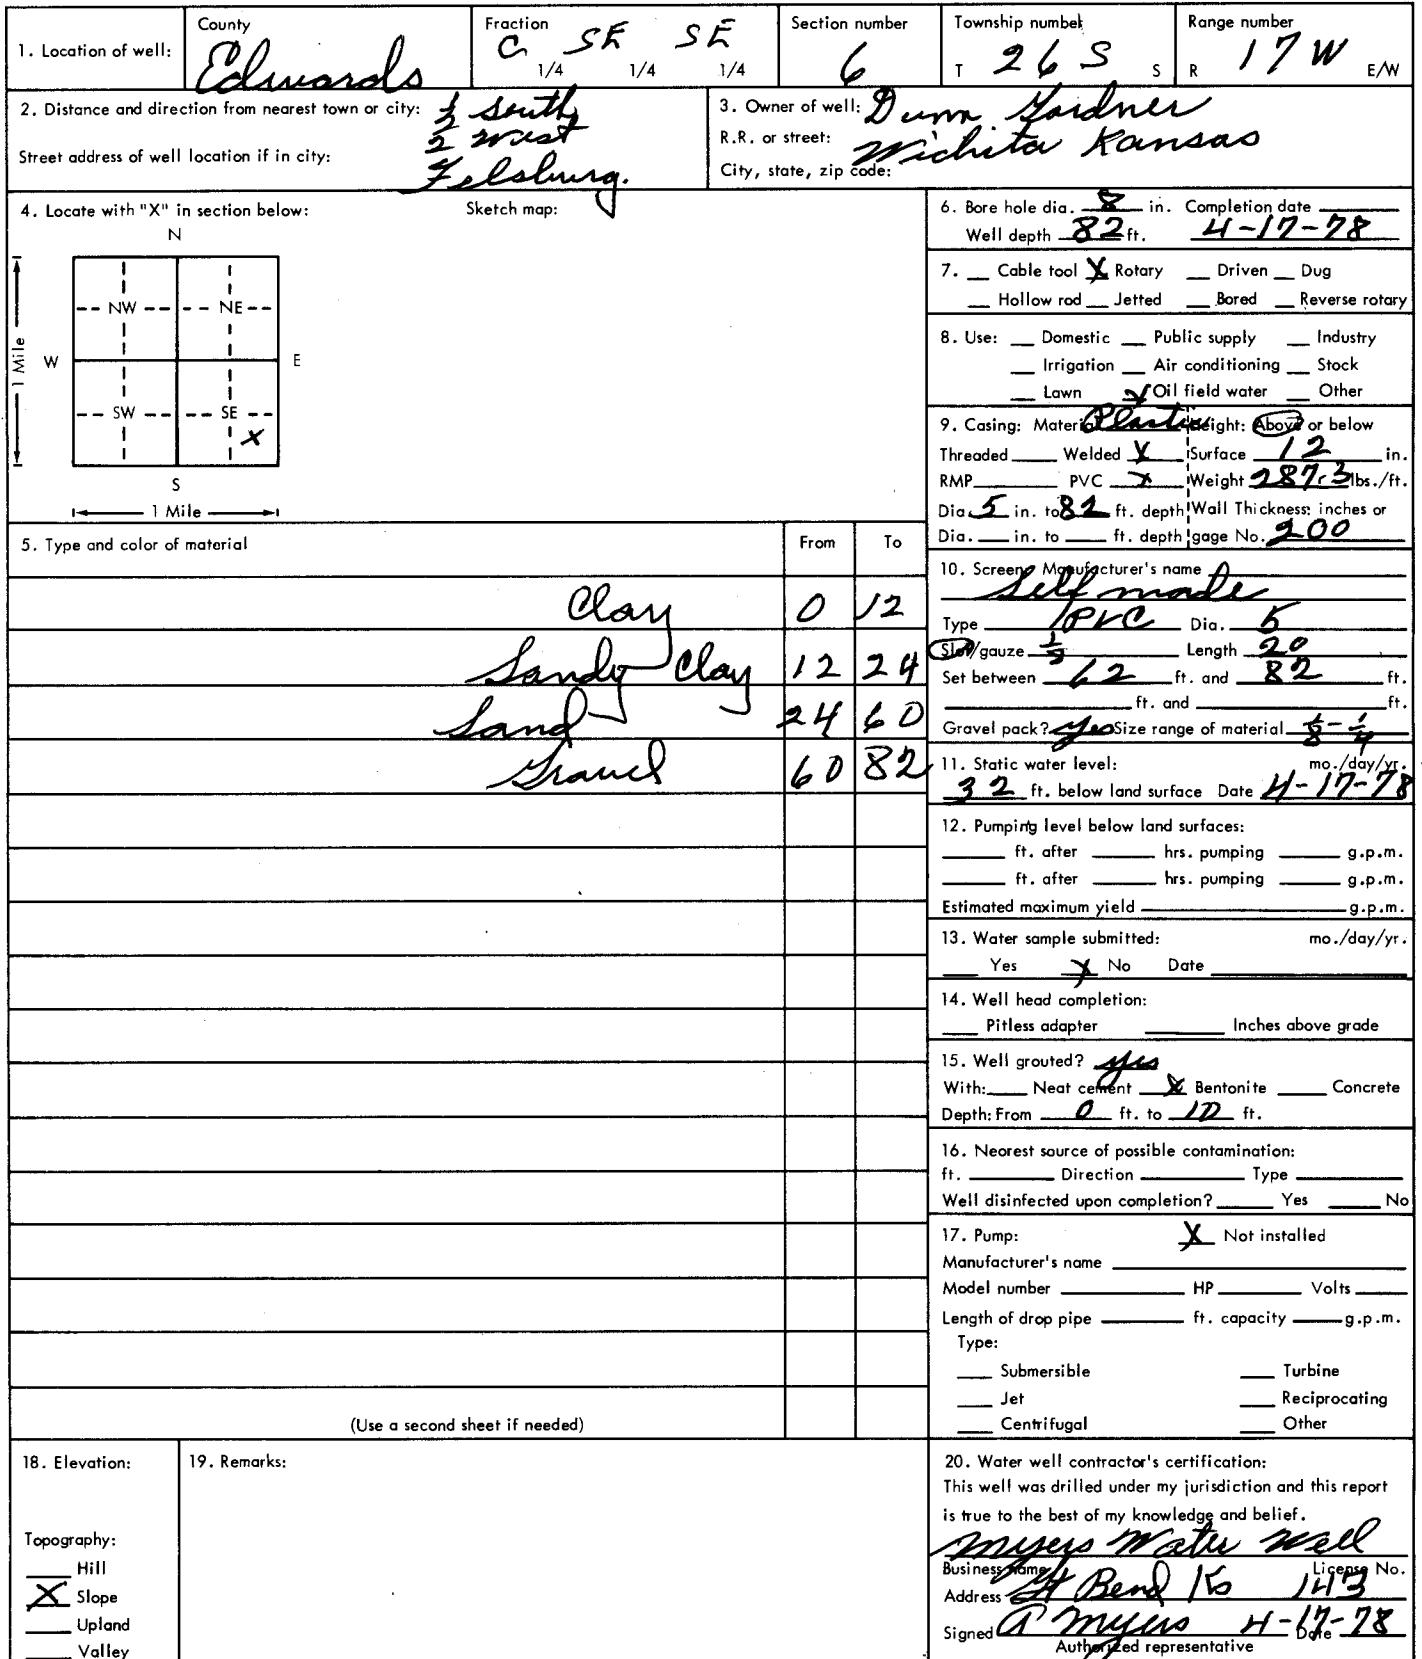 1. Location of well: County Edwards Fraction C 1/4 SE 1/4 SE 1/4 Section number 6 Township number T 26 S S Range number R 17 W E/W
2. Distance and direction from nearest town or city: ½ South
2 West
Street address of well location if in city: Felsburg.
3. Owner of well: Dunn Gardner
R.R. or street:
City, state, zip code: Wichita Kansas
4. Locate with "X" in section below: Sketch map:
N
NW NE
W E
1 Mile
SW SE
X
S
1 Mile
5. Type and color of material From To
Clay 0 12
Sandy Clay 12 24
Sand 24 60
Gravel 60 82
(Use a second sheet if needed)
6. Bore hole dia. 8 in. Completion date
Well depth 82 ft. 4-17-78
7. Cable tool X Rotary Driven Dug
Hollow rod Jetted Bored Reverse rotary
8. Use: Domestic Public supply Industry
Irrigation Air conditioning Stock
Lawn X Oil field water Other
9. Casing: Material Plastic Height: Above or below
Threaded Welded X Surface 12 in.
RMP PVC X Weight 287.3 lbs./ft.
Dia. 5 in. to 82 ft. depth Wall Thickness: inches or
Dia. in. to ft. depth gage No. 200
10. Screen: Manufacturer's name
Self made
Type PVC Dia. 5
Slot/gauze Length 20
Set between 62 ft. and 82 ft.
ft. and ft.
Gravel pack? yes Size range of material 1/8 - 1/4
11. Static water level: mo./day/yr.
32 ft. below land surface Date 4-17-78
12. Pumping level below land surfaces:
ft. after hrs. pumping g.p.m.
ft. after hrs. pumping g.p.m.
Estimated maximum yield g.p.m.
13. Water sample submitted: mo./day/yr.
Yes X No Date
14. Well head completion:
Pitless adapter Inches above grade
15. Well grouted? yes
With: Neat cement X Bentonite Concrete
Depth: From 0 ft. to 10 ft.
16. Nearest source of possible contamination:
ft. Direction Type
Well disinfected upon completion? Yes No
17. Pump: X Not installed
Manufacturer's name
Model number HP Volts
Length of drop pipe ft. capacity g.p.m.
Type:
Submersible Turbine
Jet Reciprocating
Centrifugal Other
18. Elevation:
Topography:
Hill
X Slope
Upland
Valley
19. Remarks:
20. Water well contractor's certification:
This well was drilled under my jurisdiction and this report
is true to the best of my knowledge and belief.
Myers Water Well
Business name License No.
Address Gt Bend Ks 143
Signed A Myers 4-17-78 Date
Authorized representative